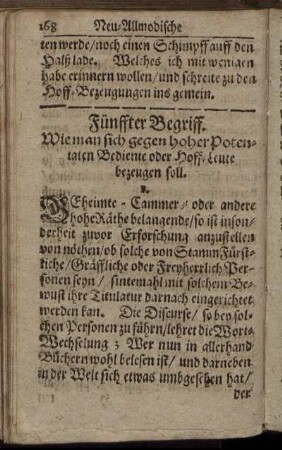 168 Neu-Allmodische
ten werde/noch einen Schimpff auff den
Halß lade. Welches ich mit wenigen
habe erinnern wollen/ und schreite zu den
Hoff-Bezeugungen ins gemein.
Fünffter Begriff.
Wie man sich gegen hoher Poten-
taten Bediente oder Hoff-Leute
bezeugen soll.
1.
GEheimte-Cammer-/ oder andere
hohe Räthe belangende/ so ist inson-
derheit zuvor Erforschung anzustellen
von nöthen/ ob solche von Stamm Fürst-
liche/ Gräffliche oder Freyherrlich Per-
sonen seyn/ sintemahl mit solchem Be-
wust ihre Titulatur darnach eingerichtet
werden kan. Die Discurse/ so bey sol-
chen Personen zu führn/ lehret die Wort-
Wechselung; Wer nun in allerhand
Büchern wohl belesen ist/ und darneben
in der Welt sich etwas umbgesehen hat/
der